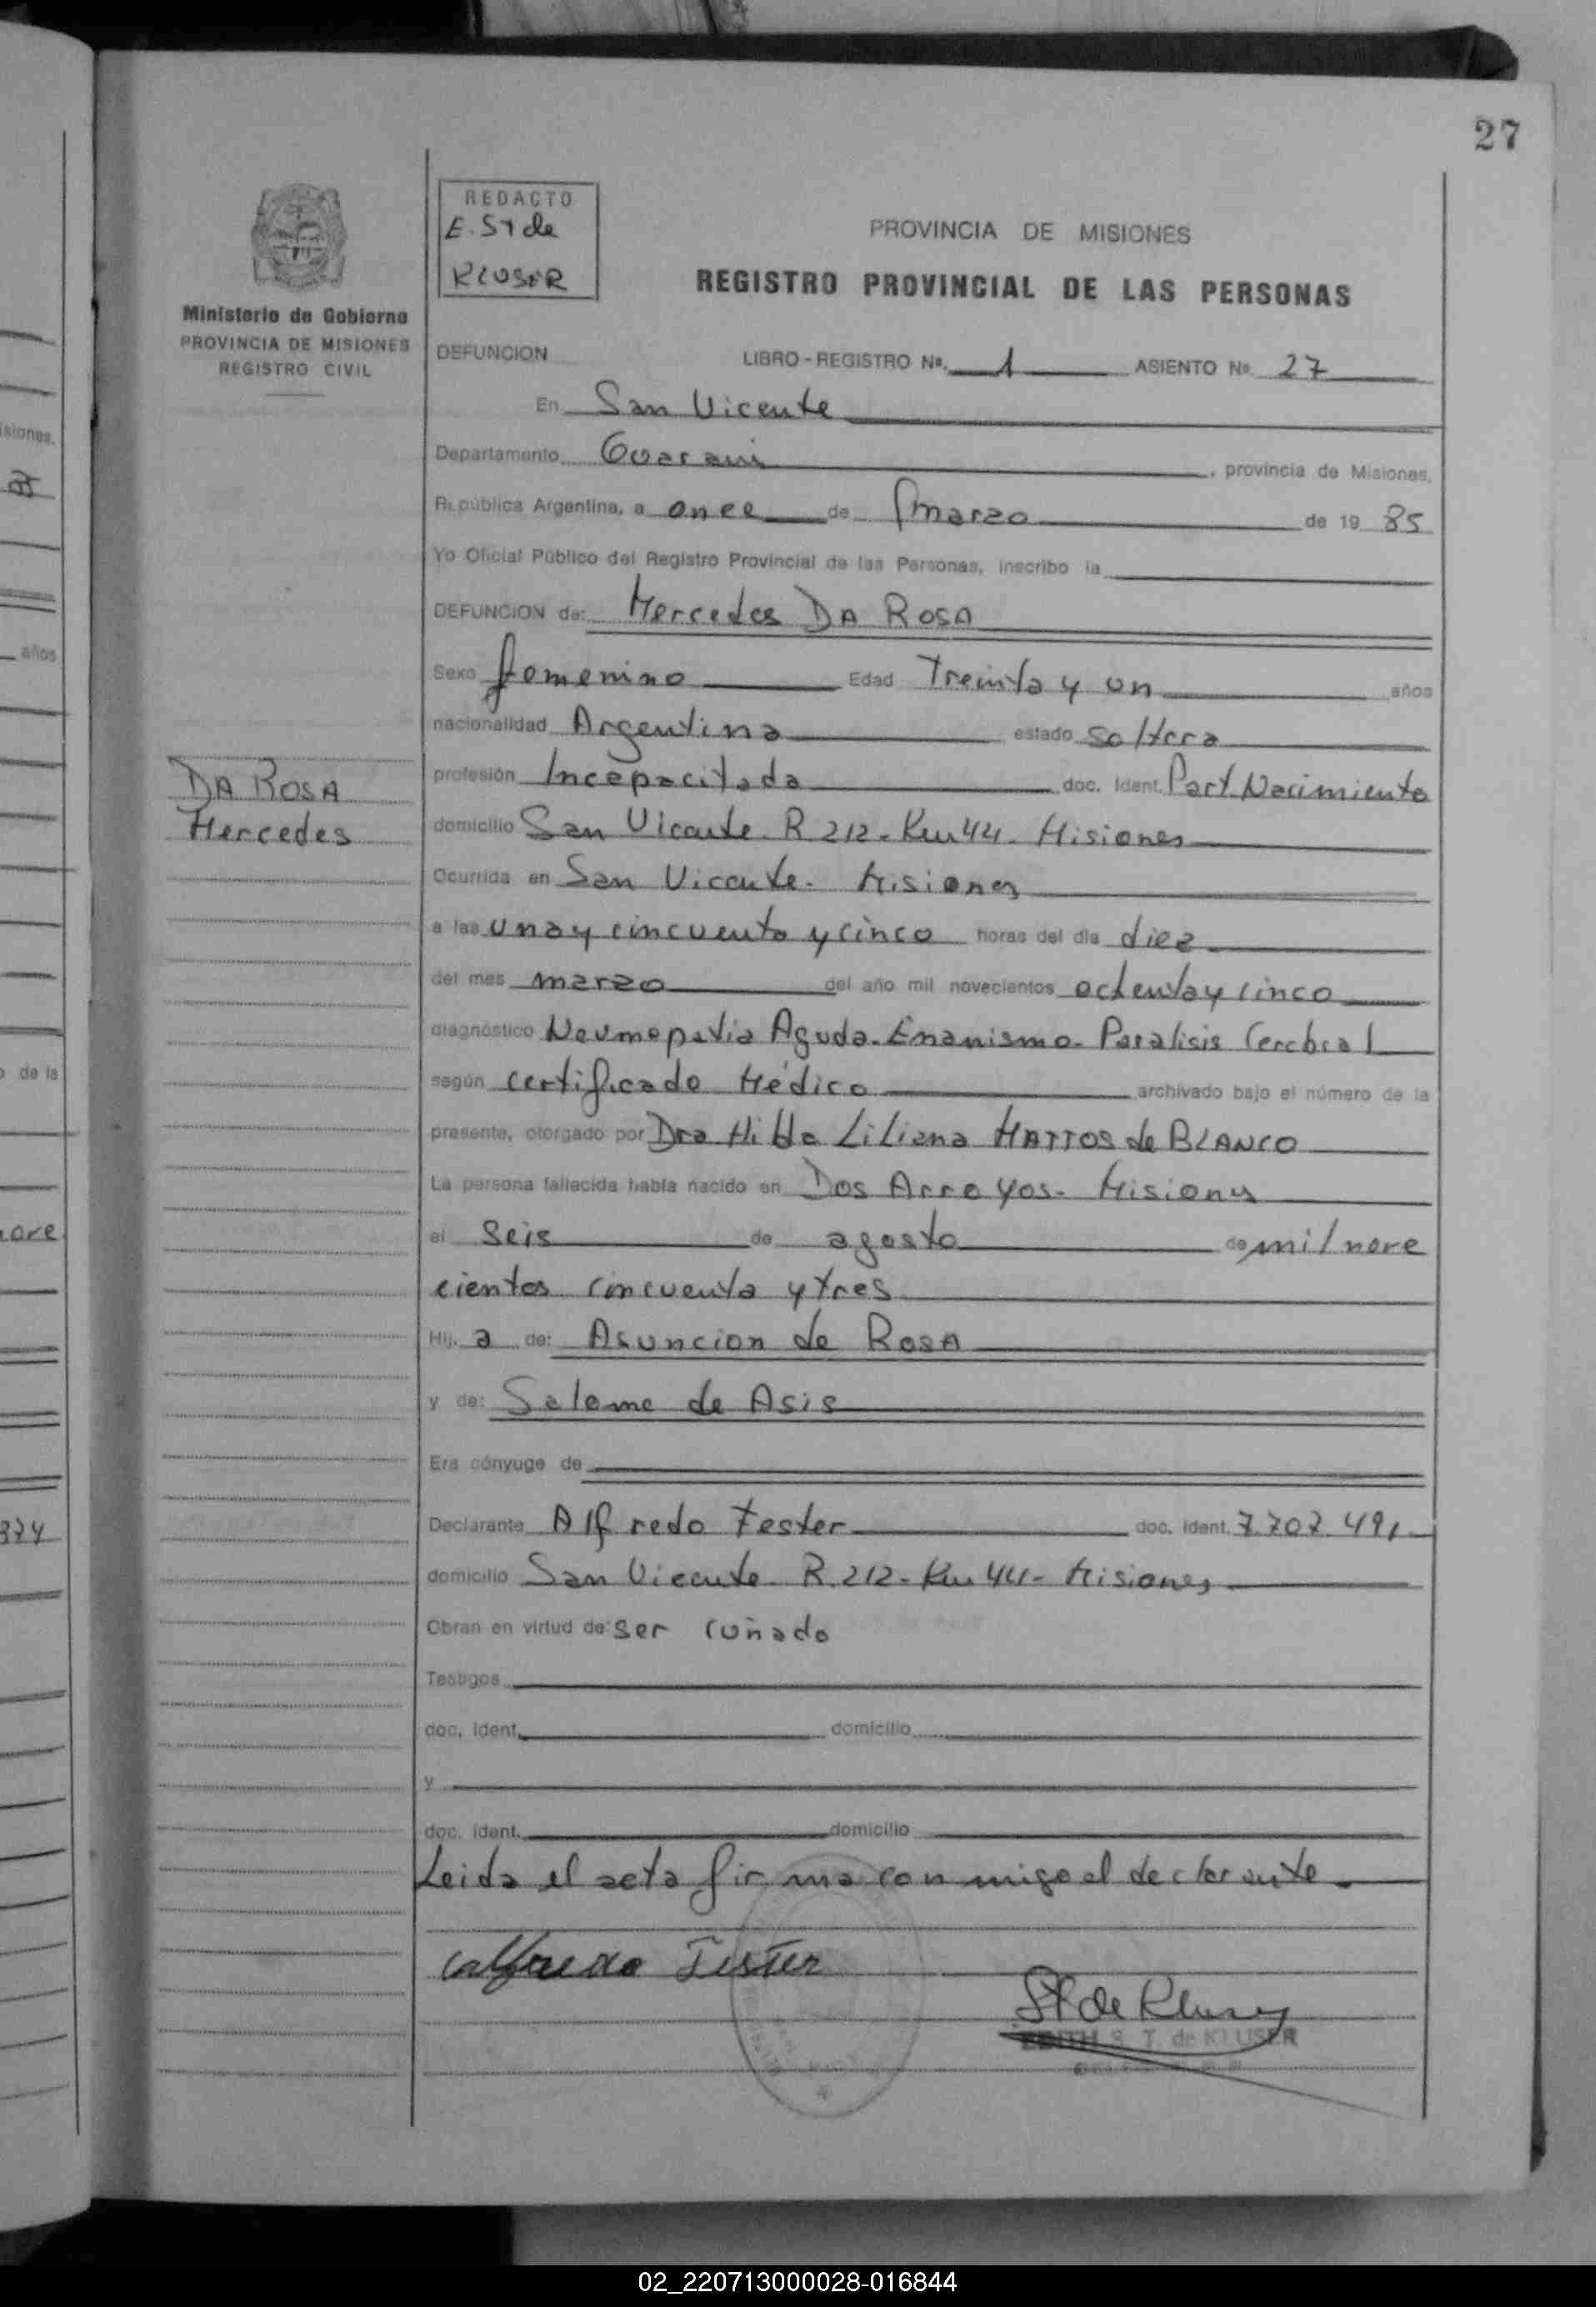 27
REDACTO
E. ST de
KLUSER
Ministerio de Gobierno
PROVINCIA DE MISIONES
REGISTRO CIVIL
PROVINCIA DE MISIONES
REGISTRO PROVINCIAL DE LAS PERSONAS
DEFUNCION LIBRO - REGISTRO Nº. 1 ASIENTO Nº 27
En San Vicente
Departamento Guarani, provincia de Misiones,
República Argentina, a once de marzo de 19 85
Yo Oficial Público del Registro Provincial de las Personas, inscribo la
DEFUNCION de: Mercedes DA ROSA
Sexo femenino Edad Treinta y un años
nacionalidad Argentina estado soltera
DA ROSA
Mercedes
profesión Incapacitada doc. Ident. Part Nacimiento
domicilio San Vicente R. 212 - Km 44 - Misiones
Ocurrida en San Vicente - Misiones
a las una y cincuenta y cinco horas del día diez
del mes marzo del año mil novecientos ochenta y cinco
diagnóstico Neumopatia Aguda - Enanismo - Paralisis Cerebral
según certificado Médico archivado bajo el número de la
presente, otorgado por Dra Hilda Liliana MATTOS de BLANCO
La persona fallecida había nacido en Dos Arroyos - Misiones
el seis de agosto de mil nove
cientos cincuenta y tres
Hij. a de: Asuncion de ROSA
y de: Salome de Asis
Era cónyuge de
Declarante Alfredo Fester doc. ident. 7.707.491
domicilio San Vicente R. 212 - Km 44 - Misiones
Obran en virtud de: ser cuñado
Testigos
doc. ident. domicilio
y
doc. ident. domicilio
Leida el acta firma conmigo el declarante.
Alfredo Fester
ST de Kluser
EDITH S. T. de KLUSER
isiones.
años
o de la
nove
374
02_220713000028-016844